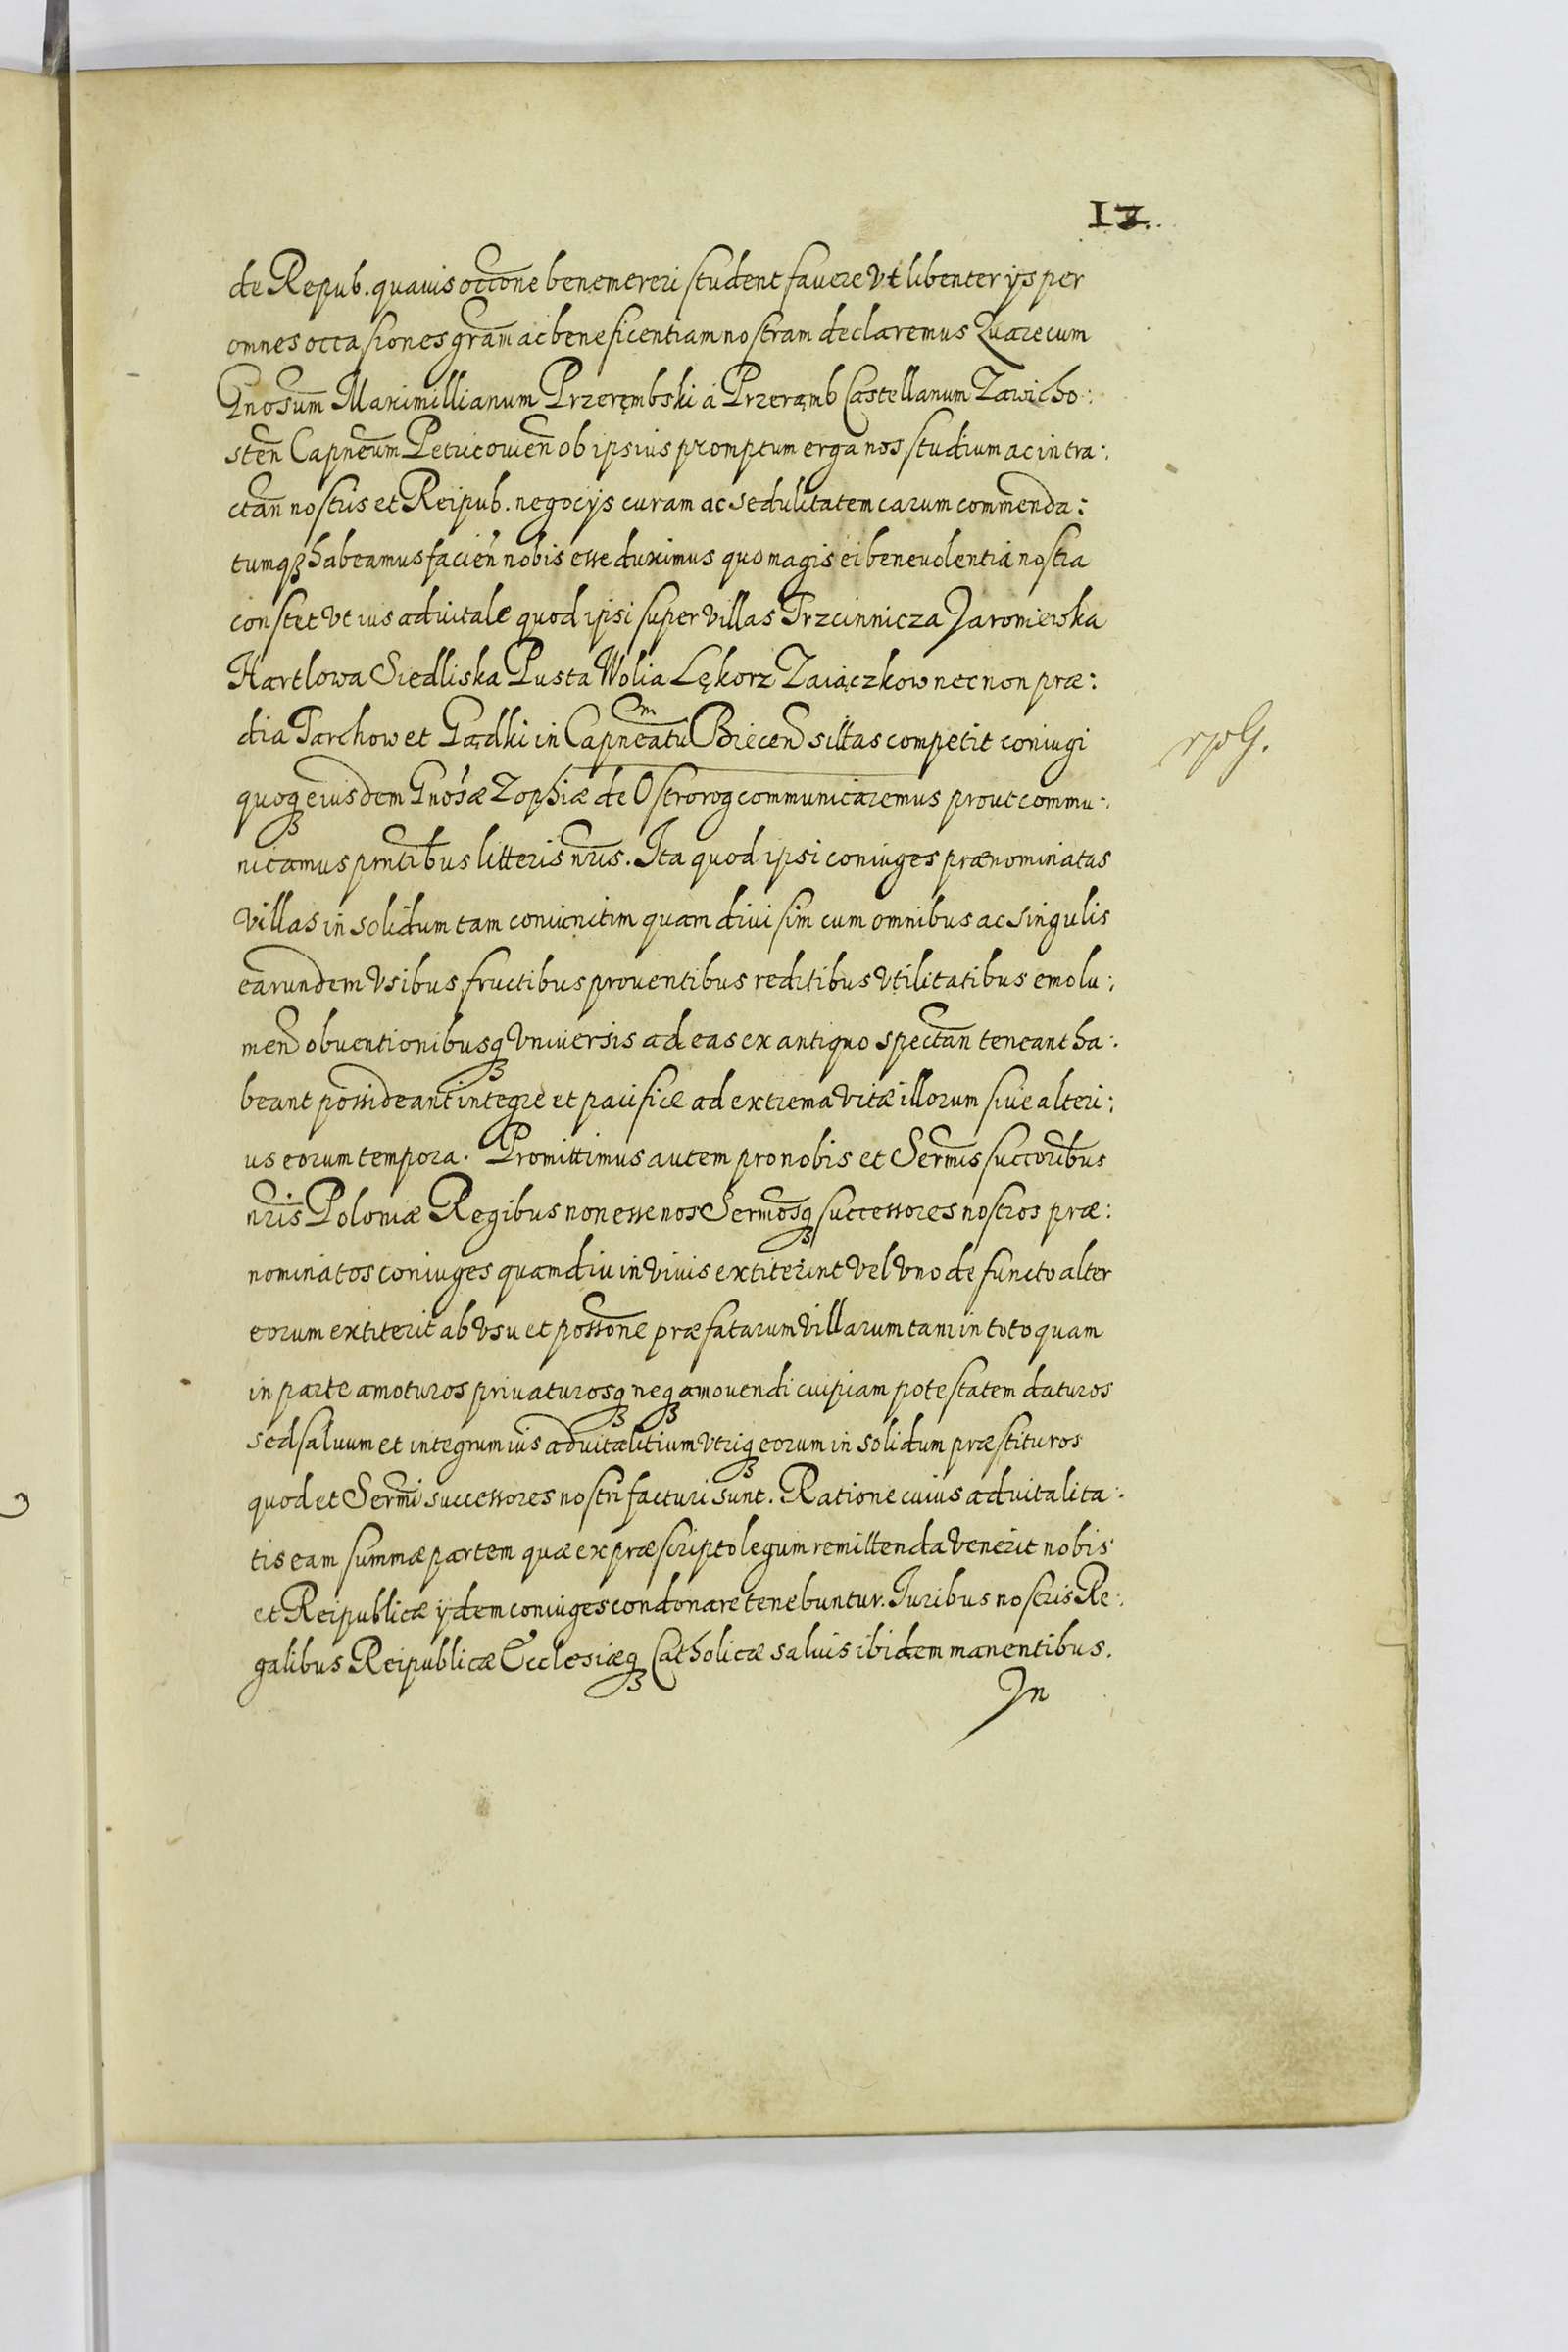 12.
de Repub. quavis occone benemereri student favere Vt libenter ijs per
omnes occasiones gram ac beneficentiam nostram declaremus Quare cum
Gnosum Maximillianum Przerembski á Przeramb Castellanum Zawicho:
sten Capneum Petricovien ob ipsius promptum erga nos studium ac in tra:
ctan nostris et Reipub. negocijs curam ac sedulitatem carum commenda:
tumqꝫ habeamus facien nobis esse duximus quo magis ei benevolentia nostra
constet Vt ius advitale quod ipsi super villas Trzcinnicza Jaroniewska
Hartlowa Siedliska Pusta Wolia Lękorz Zaiączkow nec non præ:
dia Tarchow et Gądki in Capneatu Biecen sittas competit coniugi
quoqꝫ eiusdem Gnosæ Zophiæ de Ostrorog communicaremus prout commu:
nicamus prntibus litteris nris. Ita quod ipsi coniuges prænominatas
Villas in solidum tam coniunctim quam divisim cum omnibus ac singulis
earundem Vsibus fructibus proventibus reditibus Vtilitatibus emolu:
men obventionibusqꝫ Vniversis ad eas ex antiquo spectan teneant ha:
beant possideant integre et pacifice ad extrema vitæ illorum sive alteri:
us eorum tempora. Promittimus autem pro nobis et Sermis succoribus
nris Poloniæ Regibus non esse nos Sermosqꝫ successores nostros præ:
nominatos coniuges quamdiu in Vivis extiterint vel Vno defuncto alter
eorum extiterit ab Vsu et possone præfatarum Villarum tam in toto quam
in parte amoturos privaturosqꝫ neqꝫ amovendi cuipiam potestatem daturos
sed salvum et integrum ius advitalitium Vtriqꝫ eorum in solidum præstituros
quod et Sermi successores nostri facturi sunt. Ratione cuius advitalita:
tis eam summæ partem quæ ex præscripto legum remittenda Venerit nobis
et Reipublicæ ijdem coniuges condonare tenebuntur. Iuribus nostris Re:
galibus Reipublicæ Ecclesiæqꝫ Catholicæ salvis ibidem manentibus.
In